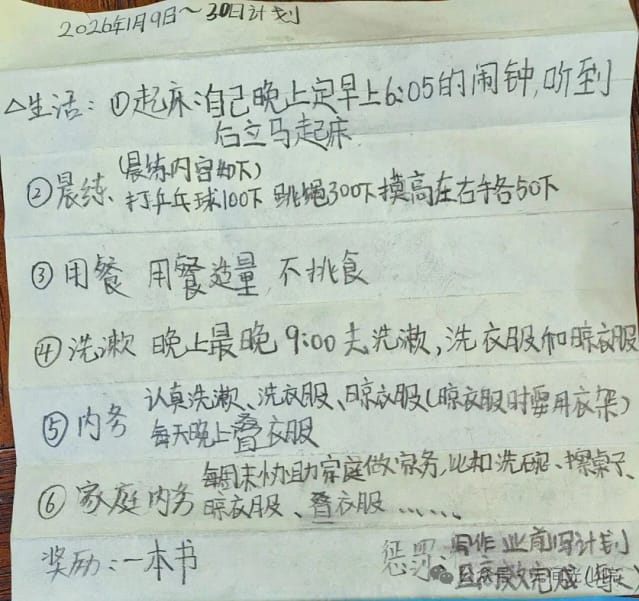 2026年1月9日～30日计划
△生活：①起床：自己晚上定早上6:05的闹钟，听到
后立马起床
(晨练内容如下)
②晨练、打乒乓球100下 跳绳300下摸高左右手各50下
③用餐 用餐适量，不挑食
④洗漱 晚上最晚9:00去洗漱，洗衣服和晾衣服
认真洗漱、洗衣服、晾衣服(晾衣服时要用衣架)
⑤内务
每天晚上叠衣服
每周末协助家庭做家务，比如洗碗、擦桌子、
⑥家庭内务
晾衣服、叠衣服……
奖励：一本书
惩罚：写作业前写计划